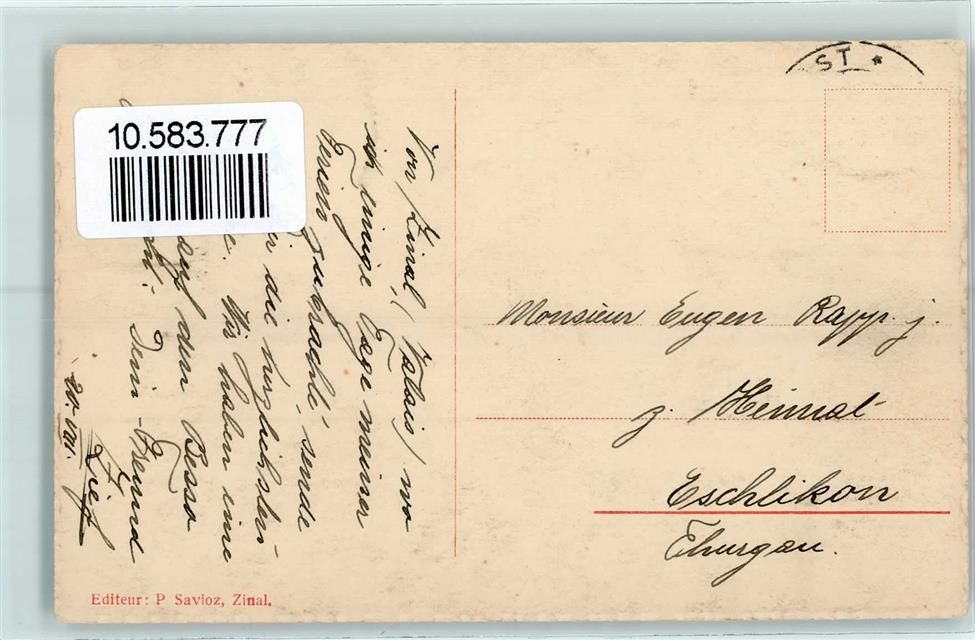 10.583.777
ST *
Von Zinal, (Valais) wo
ich einige Tage meiner
Ferien zubrachte, sende
die herzlichsten
Wir haben eine
auf den Besso
Dein Freund
20. VIII.
Monsieur Eugen Rapp j.
z. Heimat
Eschlikon
Thurgau.
Editeur: P Savioz, Zinal.